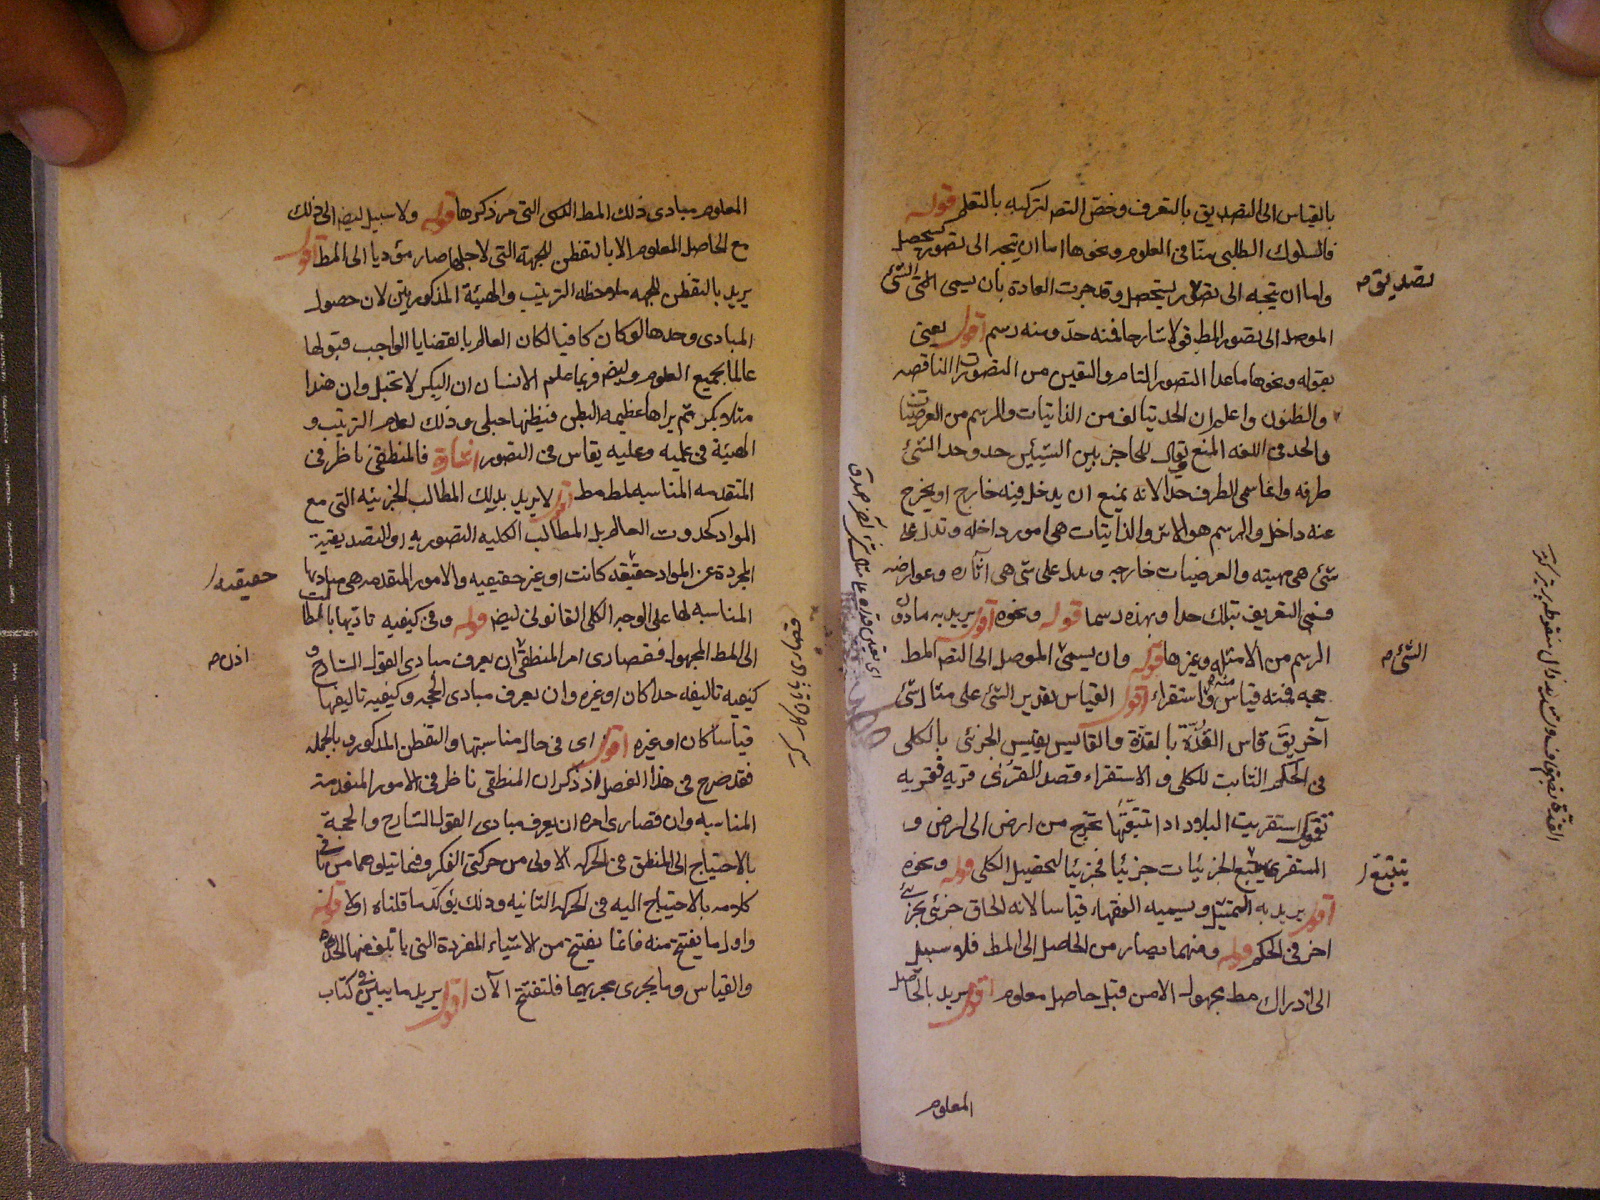 بالقياس الى التصديق بالتعرف وخص التصـ لتركبه بالتعلم قوله
فالسلوك الطلبى منا فى العلوم ونحوها اما ان يتجه الى تصور ليحصل
واما ان يتجه الى تصديق ليستحصل وقد جرت العادة بان يسمى الشئ
الموصل الى تصور المط قولا شارحا فمنه حد ومنه رسم اقول يعنى
بقوله ونحوها ما عدا التصور التام واليقين من التصورات الناقصه
والظنون واعلم ان الحد يتالف من الذاتيات والرسم من العرضيات
والحد فى اللغه المنع يقال للحاجز بين الشيئين حد وحد الشئ
طرفه وانما سمى الطرف حدا لانه يمنع ان يدخل فيه خارج او يخرج
عنه داخل والرسم هو الاثر والذاتيات هى امور داخله وتدل على
شئ هى مهيته والعرضيات خارجه وتدل على شئ هى آثاره وعوارضه
فسمى التعريف بتلك حدا وبهذه رسما قوله ونحوه اقول يريد به مادون
الرسم من الامثله وغيرها قوله وان يسمى الشئ الموصل الى التصـ المط
حجه فمنه قياس ومنه استقراء اقول القياس تقدير الشئ على مثال شئ
آخر يقـ قاس القذة بالقذة والقايس يقيس الجزئى بالكلى
فى الحكم الثابت للكلى والاستقراء قصد القرى قريه فقريه
تقول استقريت البلاد اذا تتبعتها تخرج من ارض الى ارض و
المستقرى يتتبع الجزئيات جزئيا فجزئيا لتحصيل الكلى قوله ونحوه
اقول يريد به التمثيل ويسميه الفقهاء قياسا لانه الحاق جزئى بجزئى
اخر فى الحكم قوله ومنهما يصار من الحاصل الى المط فلا سبيل
الى ادراك مط مجهول الا من قبل حاصل معلوم اقول يريد بالحاصل
المعلوم
تصديق صح
الشئ صح
يتتبع
المعلوم مبادى ذلك المط الكسبى التى مر ذكرها قوله ولا سبيل ايضـ الى ذلك
مع الحاصل المعلوم الا بالتفطن للجهة التى لاجلها صار مؤديا الى المط اقول
يريد بالتفطن للجهه ملاحظه الترتيب والهيئة المذكورتين لان حصول
المبادى وحدها لو كان كافيا لكان العالم بالقضايا الواجب قبولها
عالما بجميع العلوم وايضـ فربما علم الانسان ان البكر لا تحبل وان هندا
مثلا بكر ثم يراها عظيمه البطن فيظنها حبلى وذلك لعدم الترتيب و
الهيئة فى علميه وعليه يقاس فى التصور اشارة فالمنطقى ناظر فى
المتقدمه المناسبه لمط مط اقول لا يريد بذلك المطالب الجزئيه التى مع
المواد كحدوث العالم بل المطالب الكليه التصوريه او التصديقية
المجردة عن المواد حقيقه كانت او غير حقيقيه والامور المتقدمه هى مباديها
المناسبه لها على الوجه الكلى القانونى ايضـ قوله وفى كيفيه تاديها بالطالب
الى المط المجهول فقصارى امر المنطقى ان يعرف مبادى القول الشارح و
كيفيه تاليفه حدا كان او غيره وان يعرف مبادى الحجه وكيفيه تاليفها
قياسا كان او غيره اقول اى فى حال مناسبتها والتفطن المذكور وبالجمله
فقد صرح فى هذا الفصل اذ ذكر ان المنطقى ناظر فى الامور المتقدمة
المناسبه وان قصارى امره ان يعرف مبادى القول الشارح والحجة
بالاحتياج الى المنطق فى الحركه الاولى من حركتى الفكر وفيما يتلوهما من ثانى
كلامه بالاحتياج اليه فى الحركه الثانيه وذلك يؤكد ما قلناه اولا قوله
واول ما يفتتح منه فانما يفتتح من الاشياء المفردة التى يأتلف منها الحد
والقياس وما يجرى مجريهما فلنفتتح الآن اقول يريد ما يبين فى كتاب
حقيقيه
اذن صح